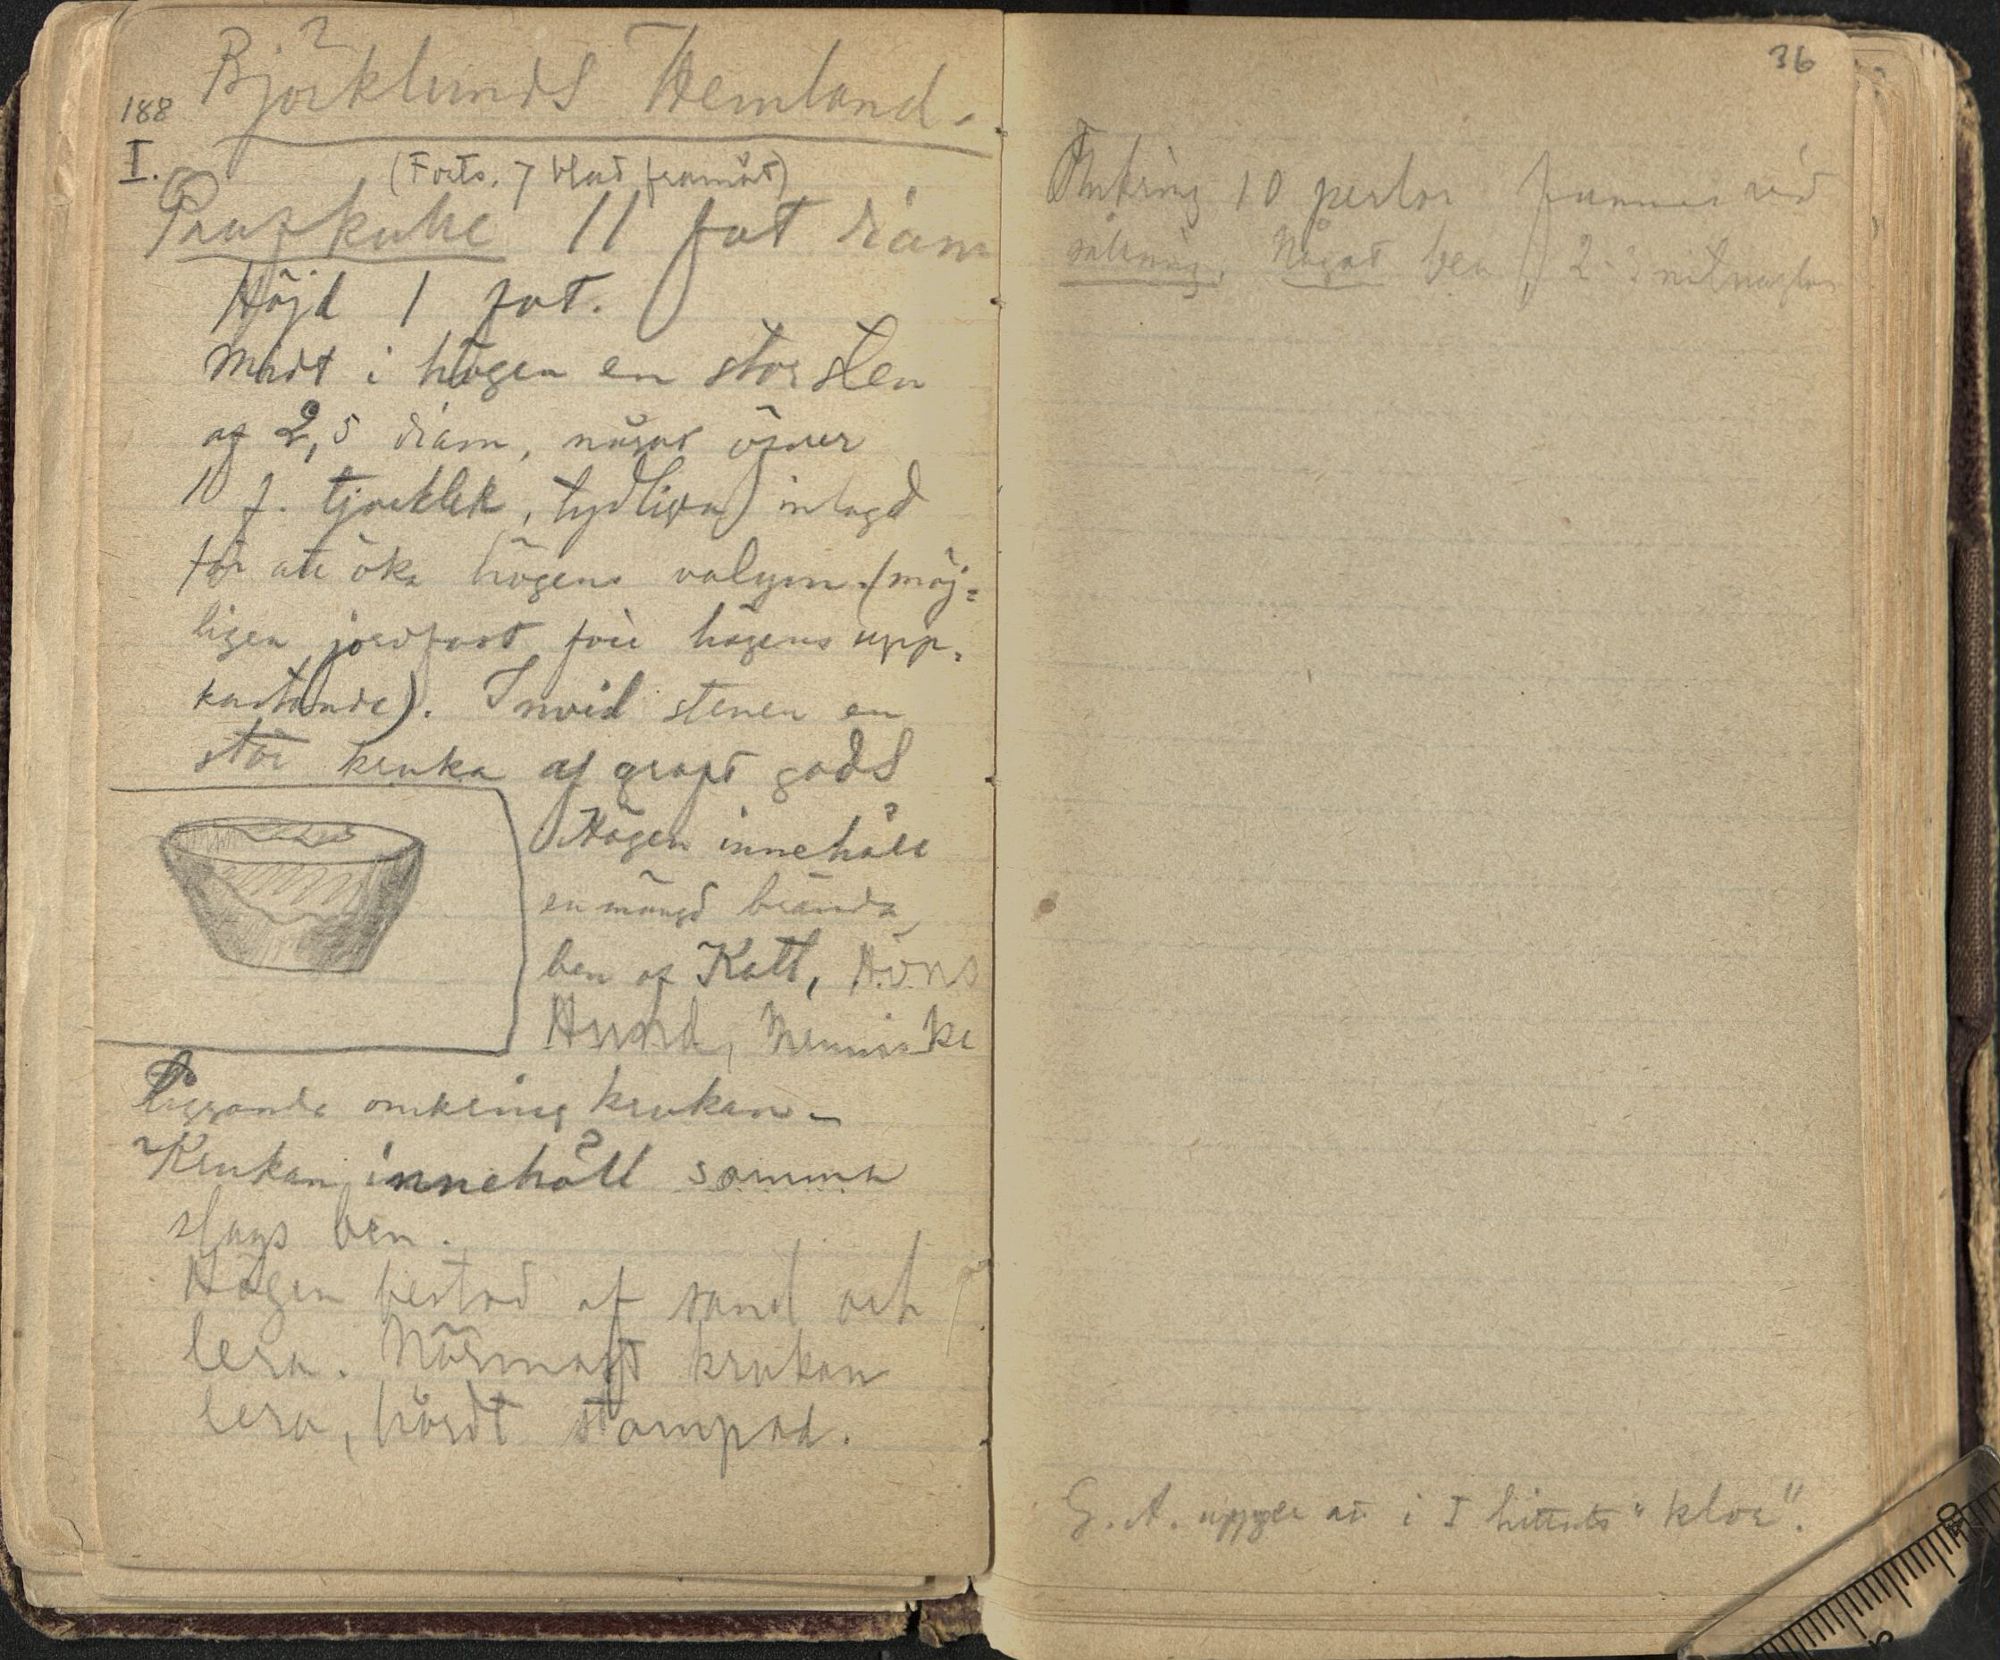 Björklunds Hemland.
188
I.
(Forts. 7 blad framåt)
11 fot diam
Höjd 1 fot.
Midt i högen en stor sten
af 2,5 diam, något öfver
10 f. tjocklek, tydligen inlagd
för att öka högens volym. (möj-
ligen jordfast före högens upp-
kastande). Invid stenen en
stor kruka af groft gods
Högen innehöll
en mängd brända
ben af Katt, Höns
Hund, Menniska
liggande omkring krukan.
Krukan innehöll samma
slags ben.
Högen bestod af sand och
lera. Närmast krukan
lera, hårdt stampad.
36
Omkring 10 perlor funnos vid
sållning. Något ben, 2-3 nitnaglar
G. A. uppger att i I hittats "klor".